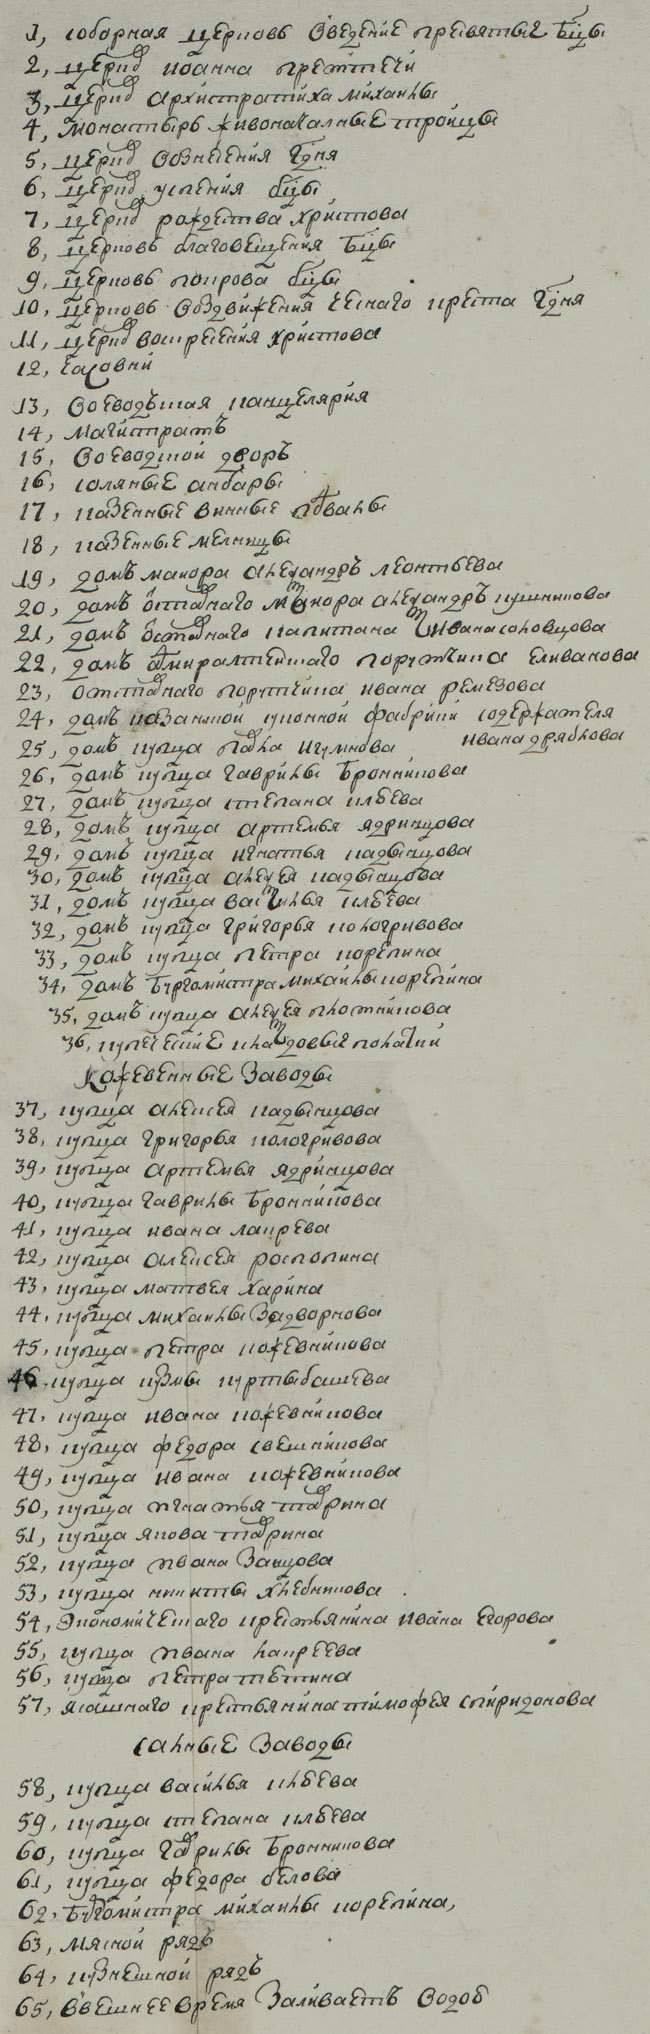 1, соборная церковь введение пресвятые бцы
2, церковь иоанна претечи
3, церковь архистратиха михаилы
4, монастырь живоначалные троицы
5, церковь вознесения гдня
6, церковь успения бцы
7, церковь рождества христова
8, церковь благовещения бцы
9, церковь покрова бцы
10, церковь воздвижения чеснаго креста гдня
11, церковь воскресения христова
12, часовни
13, воеводъская канцелярия
14, магистратъ
15, воеводской дворъ
16, соляные анбары
17, казенные винные подвалы
18, казенные мелницы
19, домъ маиора александръ леонтьева
20, домъ отставнаго маиора александръ пушникова
21, домъ отставнаго капитана ивана соловцова
22, домъ адмиралтейскаго порутчика селиванова
23, отставнаго порутчика ивана ремезова
24, домъ казанской суконной фабрики содержателя
ивана дряблова
25, домъ купца павла игумнова
26, домъ купца гаврилы бронникова
27, домъ купца степана ильева
28, домъ купца артемья ядринцова
29, домъ купца игнатья кадынцова
30, домъ купца алексея кадынцова
31, домъ купца василья ильева
32, домъ купца григорья пологривова
33, домъ купца петра корепина
34, домъ бургомистра михаилы корепина
35, домъ купца алексея плотникова
36, купеческие кладовые полатки
кожевенные заводы
37, купца алексея кадынцова
38, купца григорья пологривова
39, купца артемья ядринцова
40, купца гаврилы бронникова
41, купца ивана лапрева
42, купца алексея роспопина
43, купца матвея харина
44, купца михаилы задворнова
45, купца петра кожевникова
46, купца кузмы куртыбашева
47, купца ивана кожевникова
48, купца федора свешникова
49, купца ивана кожевникова
50, купца игнатья таврина
51, купца якова таврина
52, купца ивана заицова
53, купца никиты хлебникова
54, экономическаго крестьянина ивана егорова
55, купца ивана лапреева
56, купца петра тетина
57, ясашнаго крестьянина тимофея спиридонова
салные заводы
58, купца василья ильева
59, купца степана ильева
60, купца гаврилы бронникова
61, купца федора белова
62, бургомистра михаилы корепина,
63, мясной рядъ
64, кузнешной рядъ
65, ввешнее время заливаетъ водоо